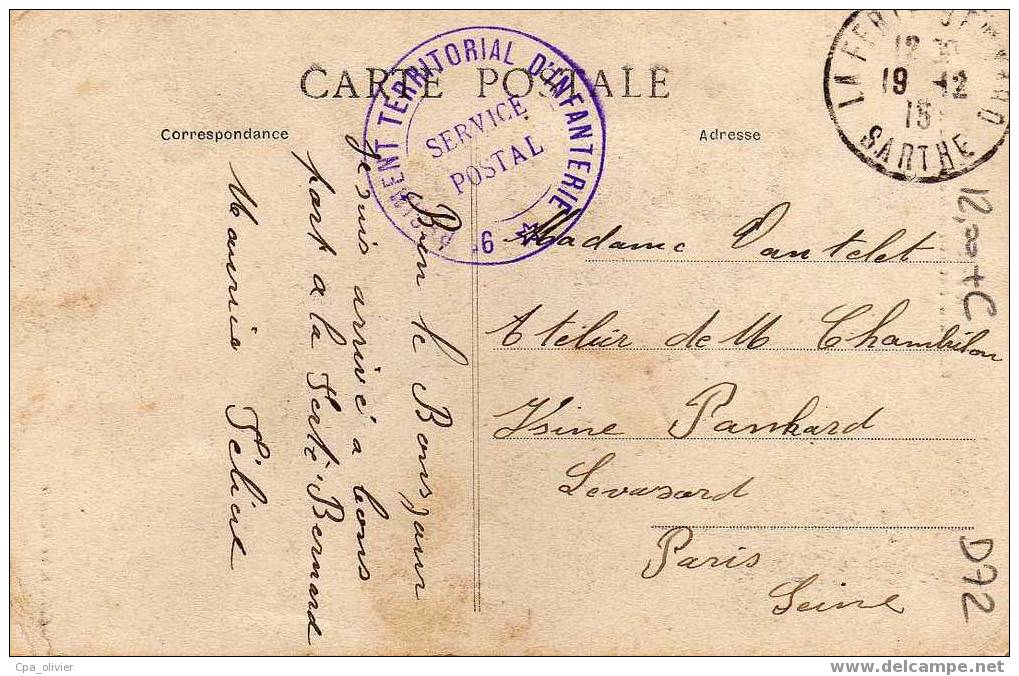 CARTE POSTALE
Correspondance
Adresse
REGIMENT TERRITORIAL D'INFANTERIE
SERVICE
POSTAL
LA FERTE BERNARD
12
19 12
15
SARTHE
Bien le Bonsjour
Je suis arrivé a bons
port a la Ferté-Bernard
Maurice Félicie
Madame Vantelet
Atelier de M Chambilon
Usine Panhard
Levasord
Paris
Seine
12,00+C
D72
Cpa_olivier
www.delcampe.net